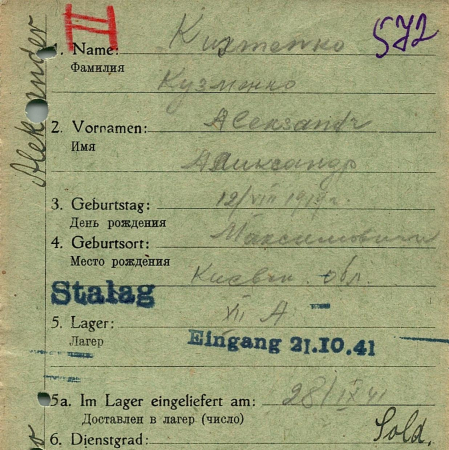 Aleksander
II
572
1. Name: Kusmenko
Фамилия
Кузменко
2. Vornamen: Aleksandr
Имя
Александр
3. Geburtstag: 12/VIII 1919г.
День рождения
4. Geburtsort: Максимовичи
Место рождения
Киевск. обл.
Stalag
5. Lager: VII A
Лагер
Eingang 21.10.41
5a. Im Lager eingeliefert am: 28/IX 41
Доставлен в лагер (число)
6. Dienstgrad: Sold.